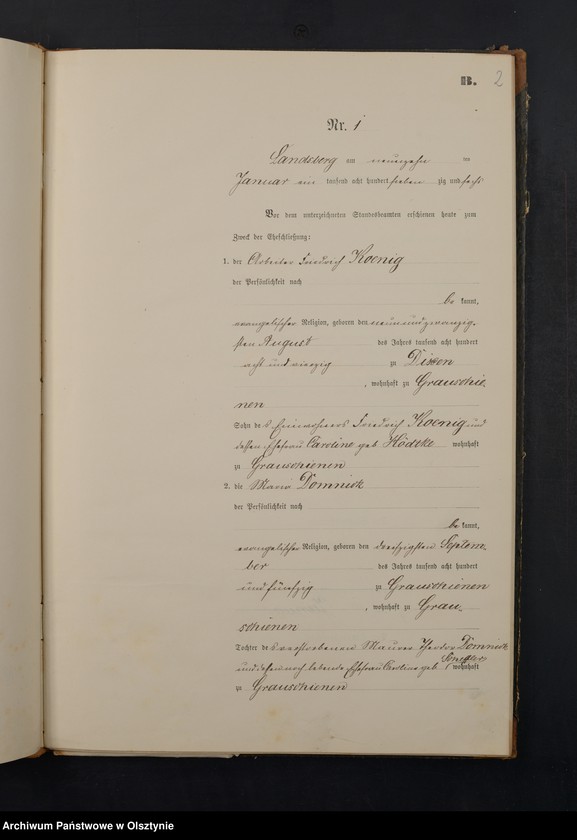 B. 2
Nr. 1
Landsberg am neunzehn ten
Januar ein tausend acht hundert sieben zig und sechs
Vor dem unterzeichneten Standesbeamten erschienen heute zum
Zweck der Eheschließung:
1. der Arbeiter Friedrich Koenig
der Persönlichkeit nach
be kannt,
evangelischer Religion, geboren den neunundzwanzig-
sten August des Jahres tausend acht hundert
acht und vierzig zu
, wohnhaft zu Grauschie-
nen
Sohn des Einwohners Friedrich Koenig und
dessen Ehefrau Caroline geb wohnhaft
zu Grauschienen
2. die Maria Domnick
der Persönlichkeit nach
be kannt,
evangelischer Religion, geboren den dreißigsten Septem-
ber des Jahres tausend acht hundert
und fünfzig zu Grauschienen
, wohnhaft zu Grau-
schienen
Tochter des verstorbenen Maurer Theodor Domnick
und dessen noch lebende Ehefrau Caroline geb wohnhaft
zu Grauschienen
Archiwum Państwowe w Olsztynie